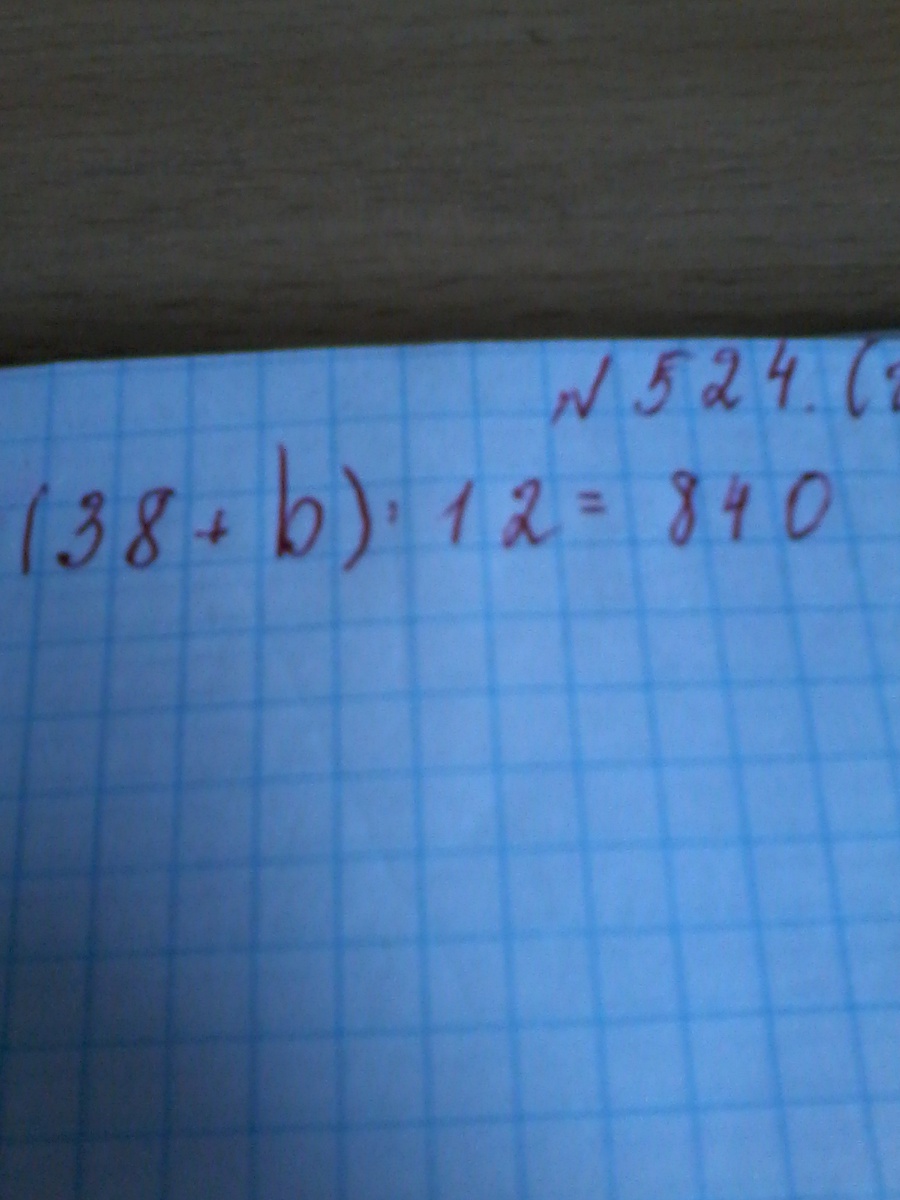 № 524. (
(38 + b) : 12 = 840